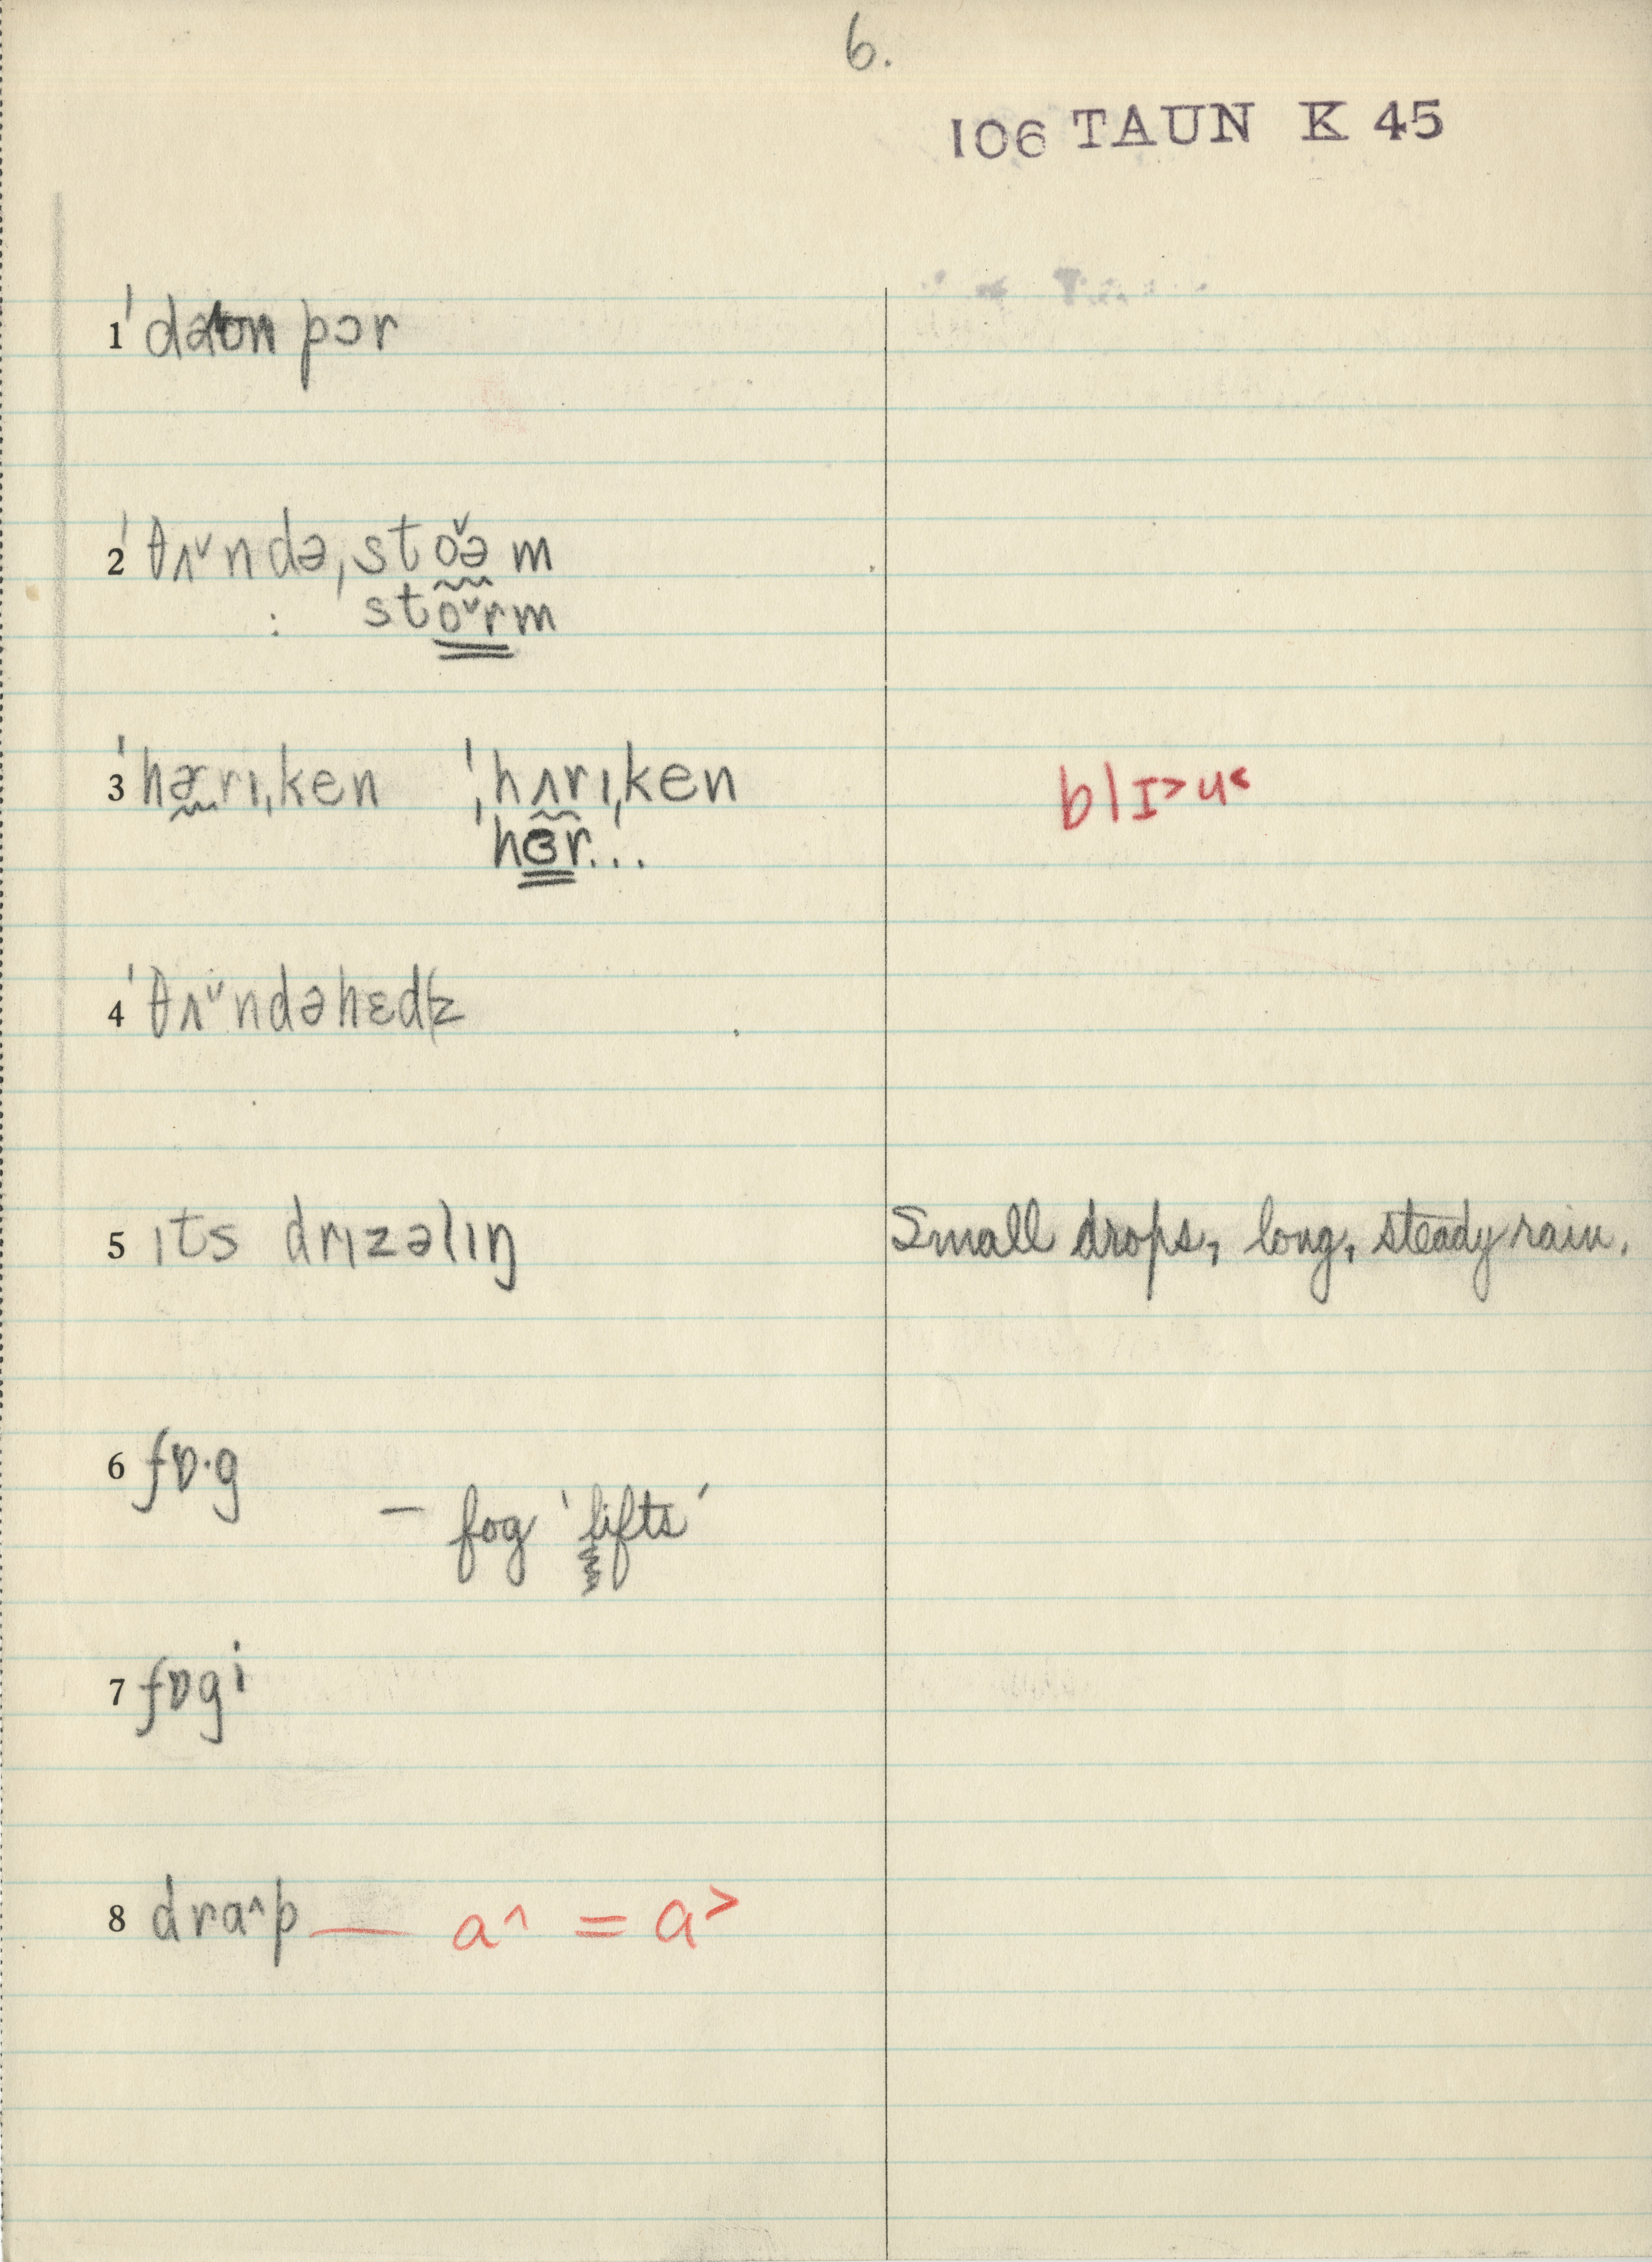 6.
106 TAUN K 45
1 ˈdaʊn pɔr
2 ˈθʌ˅ndə,sto˅ə m
: sto˅rm
3 ˈhərɪ,ken ˈhʌrɪ,ken
ˈhɜr...
blɪ˃ɥ˂
4 ˈθʌ˅ndəhɛdʒ
5 ɪts drɪzəlɪŋ Small drops, long, steady rain.
6 fɒ·g
— fog 'lifts'
7 fɒgi
8 dra^p — a^ = a˃